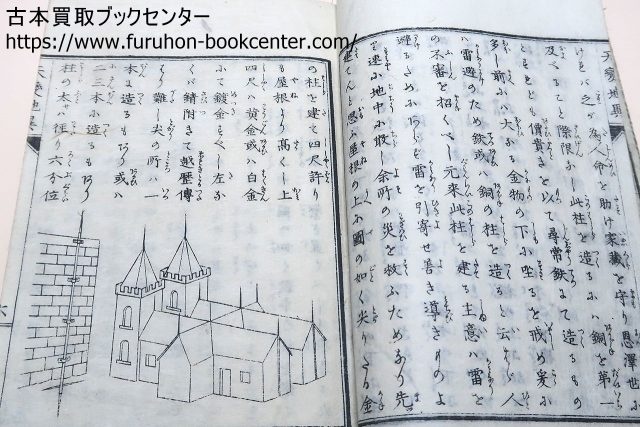 古本買取ブックセンター
https://www.furuhon-bookcenter.com/
天変地異
けれバ之が為人命を助け家蔵を守り恩澤世に
及べること際限なし此柱を造るにハ銅を第一
とすれども價貴きを以て尋常鉄にて造るもの
多し前にハ大なる金物の下に坐るを戒め爰に
ハ雷避のため鉄或ハ銅の柱を造ると云ハゞ人
の不審を招くべし元来此柱を建る主意ハ雷を
避るためにあらず雷を引寄せ善き導きによ
て逃に地中に取し余所の災を救ふためなり先
建てんと思ふ屋根の上に圖の如く尖りたる金
の柱を建て四尺許り
も屋根より高くし上
四尺ハ黄金或ハ白金
にて鍍金すべし左な
くバ錆附きて越歴傳
り難し尖の所ハ一
本に造るもあり或ハ
二三本に造るもあり
柱の太ハ径り六分位